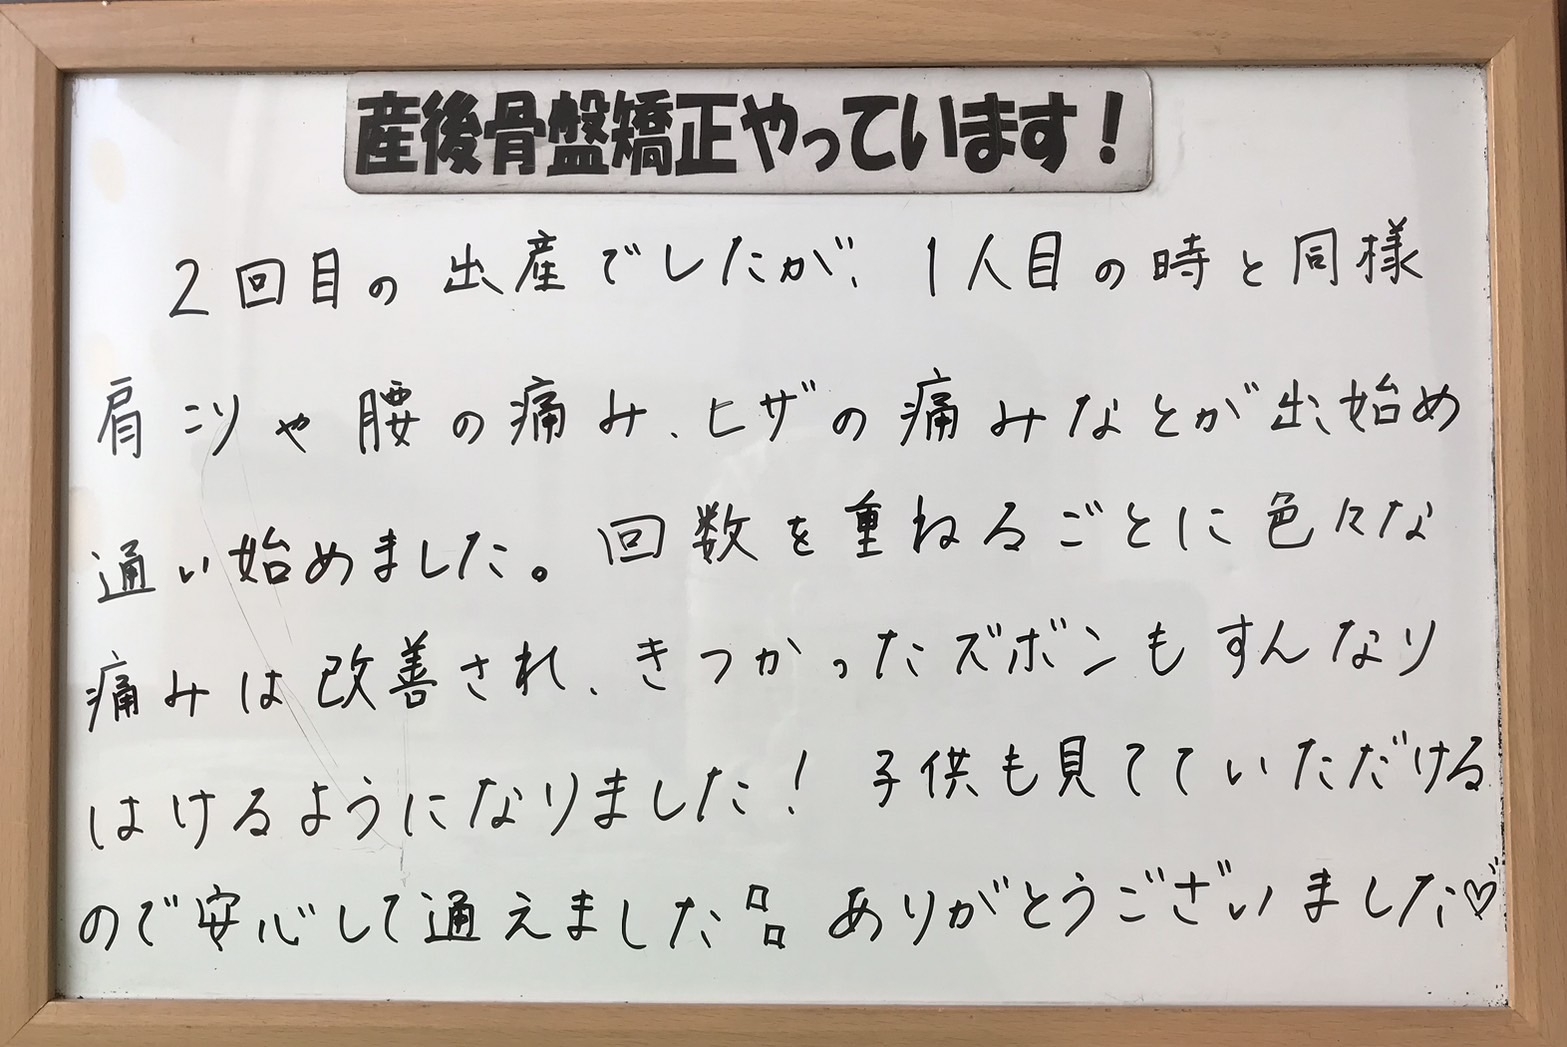 産後骨盤矯正やっています！
2回目の出産でしたが、1人目の時と同様
肩コリや腰の痛み、ヒザの痛みなとが出始め
通い始めました。回数を重ねるごとに色々な
痛みは改善され、きつかったズボンもすんなり
はけるようになりました！子供も見てていただける
ので安心して通えました ありがとうございました♡